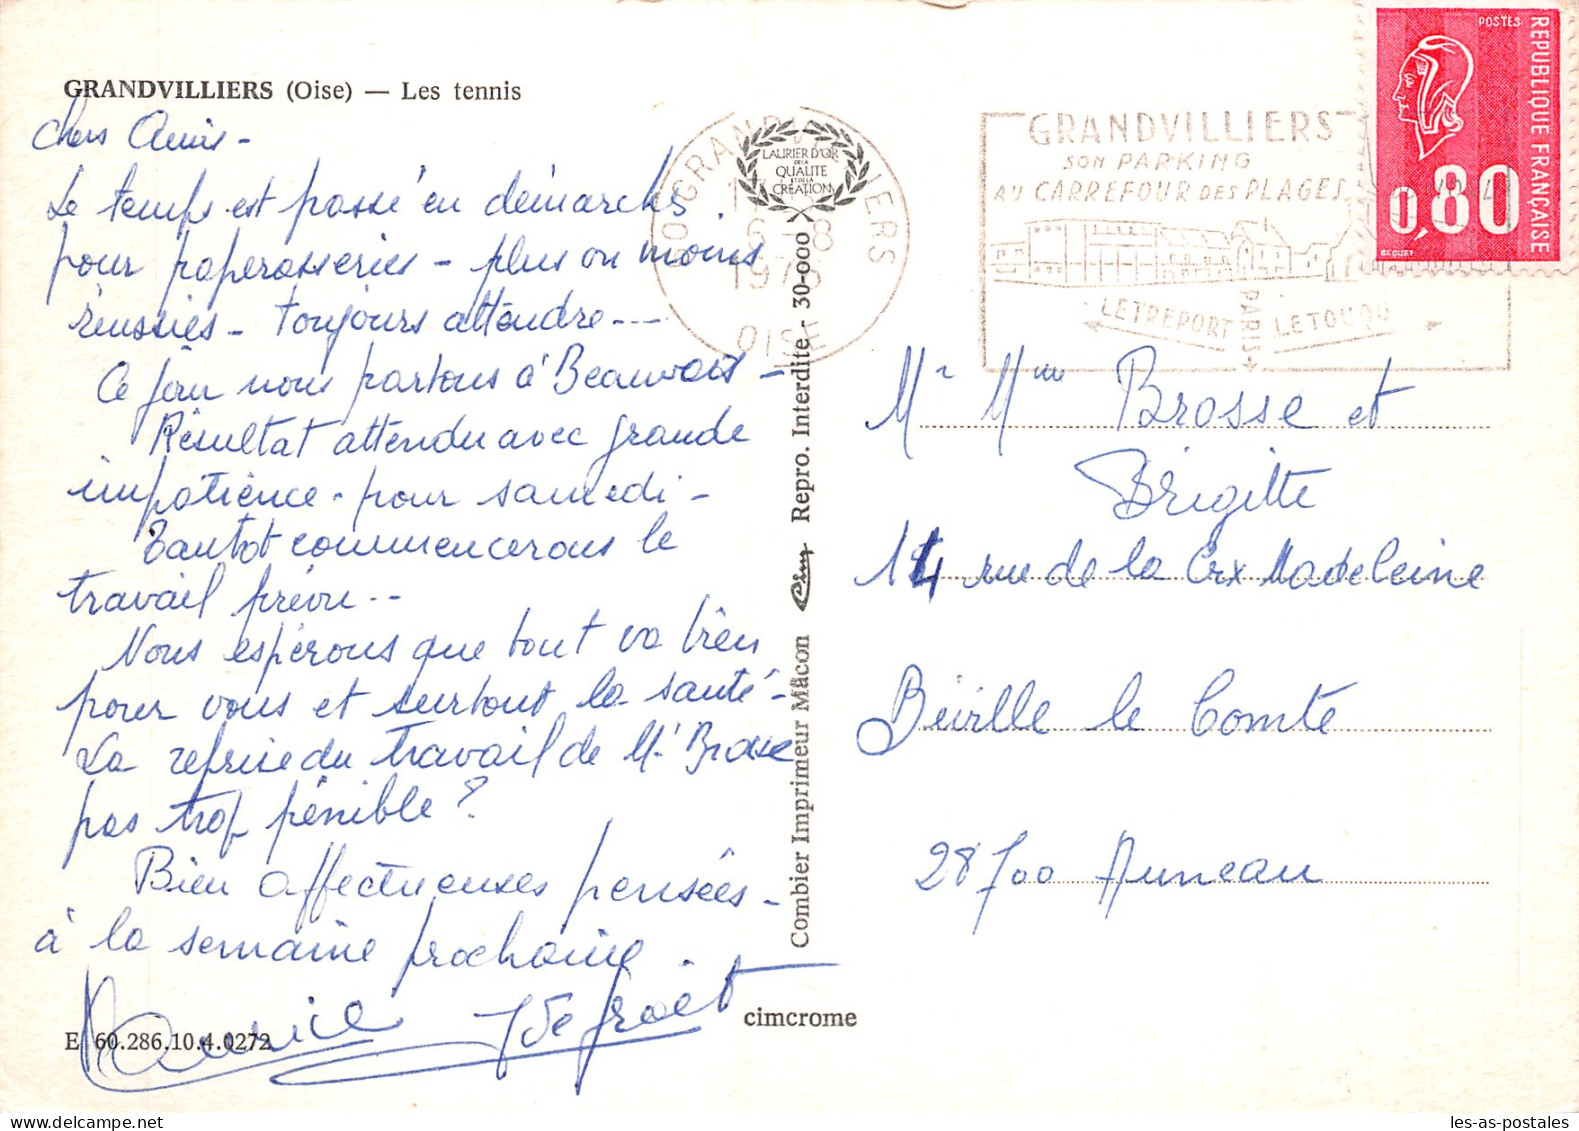 GRANDVILLIERS (Oise) — Les tennis
Chers Amis -
Le temps est passé en démarches
pour paperasseries - plus ou moins
réussies - toujours attendre ---
Ce jour nous partons à Beauvais -
Résultat attendu avec grande
impatience - pour samedi -
Tantôt commencerons le
travail prévu --
Nous espérons que tout va bien
pour vous et surtout la santé -
La reprise du travail de Mr Brosse
pas trop pénible ?
Bien affectueuses pensées -
à la semaine prochaine
Maurice
E 60.286.10.4.0272
cimcrome
Combier Imprimeur Mâcon Cim Repro. Interdite - 30-000
LAURIER D'OR
DE LA
QUALITE
ET DE LA
CREATION
60 GRANDVILLIERS
6 - 8
OISE
GRANDVILLIERS
SON PARKING
AU CARREFOUR DES PLAGES
LE TREPORT
PARIS
LE TOUQU
POSTES
REPUBLIQUE FRANÇAISE
0,80
BEQUET
Mr Mme Brosse et
Brigitte
14 rue de la Crx Madeleine
Béville le Comte
28700 Auneau
les-as-postales